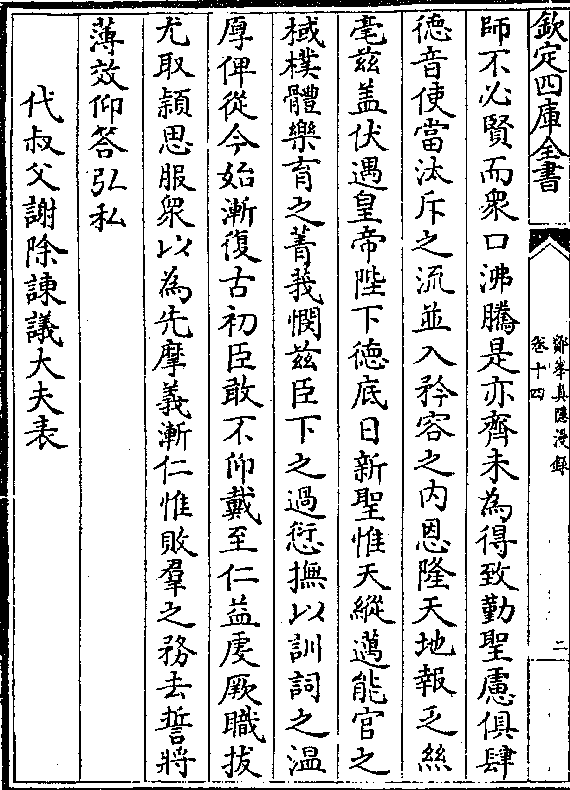 欽定四庫全書
鄮峯真隱漫録
卷十四
二
師不必賢而衆口沸騰是亦齊未為得致勤聖慮俱肆
德音使當汰斥之流並入矜容之内恩隆天地報乏絲
毫茲盖伏遇皇帝陛下德底日新聖惟天縱邁能官之
棫樸體樂育之菁莪憫茲臣下之過愆撫以訓詞之温
厚俾從今始漸復古初臣敢不仰戴至仁益虔厥職拔
尤取穎思服衆以為先摩義漸仁惟敗羣之務去誓將
薄效仰答弘私
代叔父謝除諫議大夫表